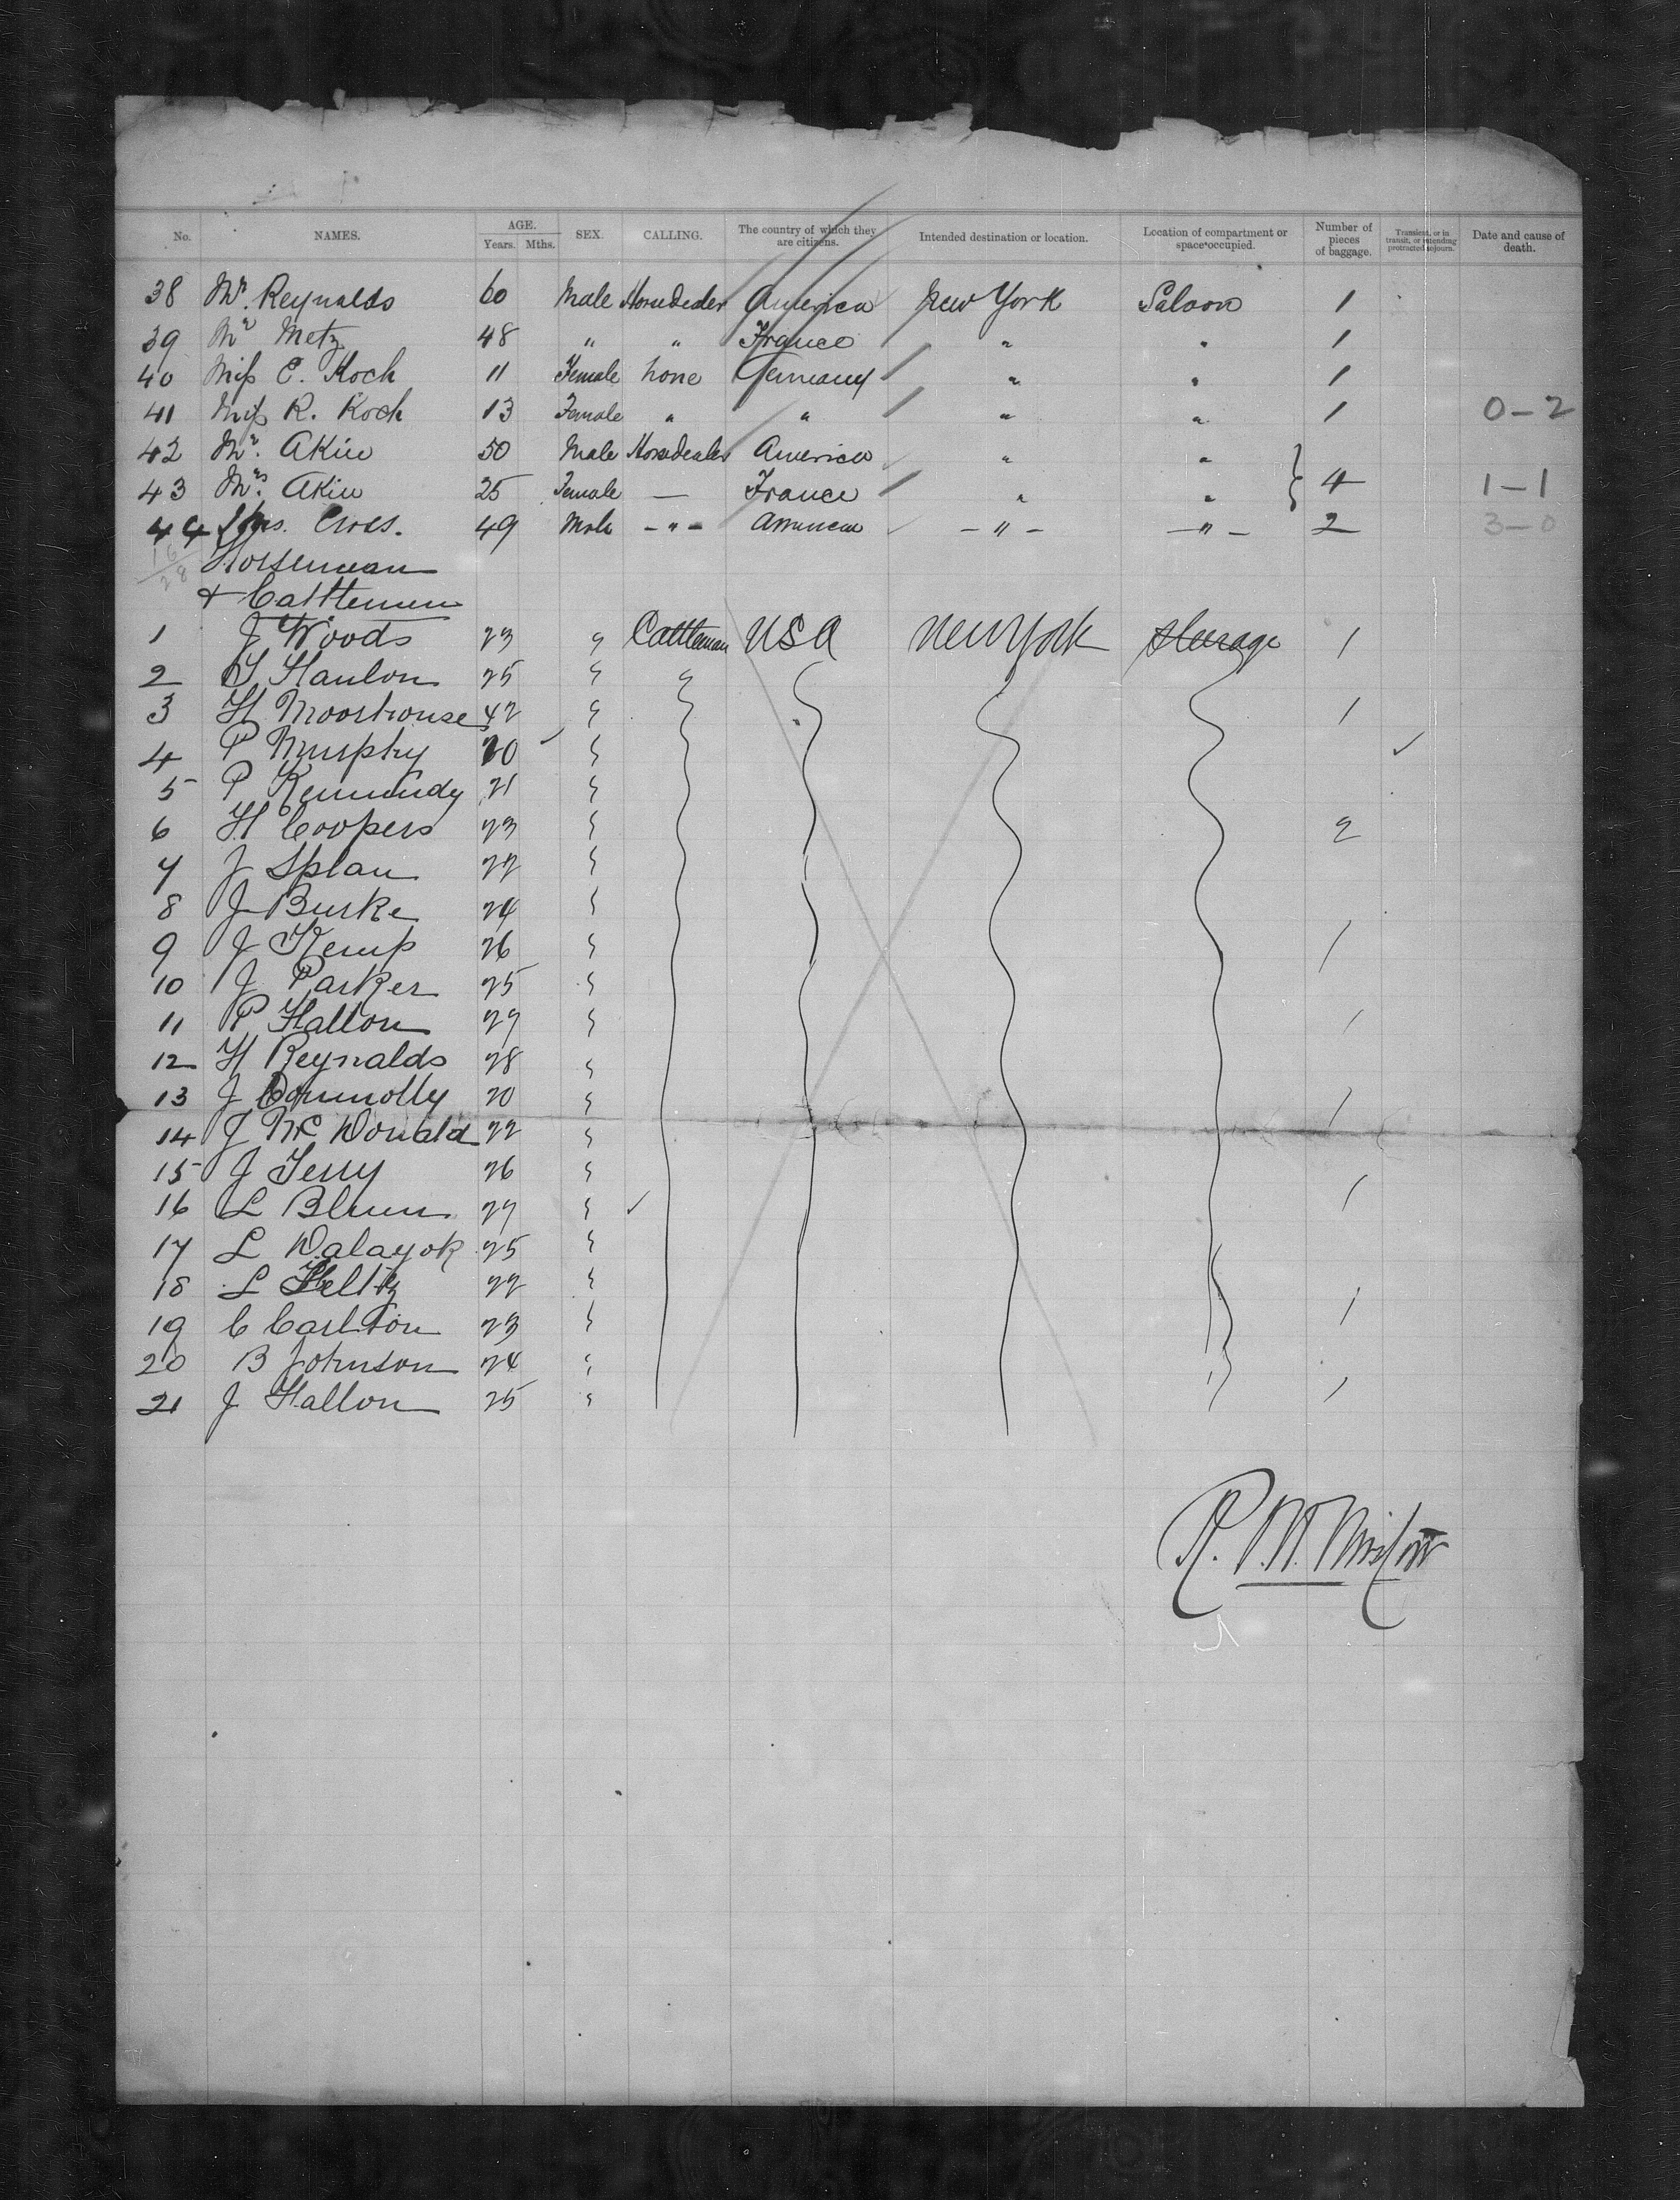 No. NAMES. AGE. Years. Mths. SEX. CALLING. The country of which they are citizens. Intended destination or location. Location of compartment or space occupied. Number of pieces of baggage. Transient, or in transit, or intending protracted sojourn. Date and cause of death.
38 Mr. Reynalds 60 Male Horsedealer America New York Saloon 1
39 Mr Metz 48 " " France " " 1
40 Miss E. Koch 11 Female none Germany " " 1
41 Miss R. Koch 13 Female " " " " 1 0-2
42 Mr. Akin 50 Male Horsedealer America " "
43 Mrs. Akin 25 Female — France " " 4 1-1
44 Cross. 49 Male - " - American - " - - " - 2 3-0
16/28 Horseman
+ Cattlemen
1 J Woods 23 " Cattleman USA New York Steerage 1
2 Hanlon 25
3 H Moorhouse 42 1
4 P Murphy 20
5 P Kennundy 21
6 H Coopers 23 2
7 J Splan 22
8 J Burke 24
9 J Kemp 26 1
10 J Parker 25
11 P Hallon 27 1
12 H Reynalds 28
13 J Connolly 20 1
14 J Mc Donald 22
15 J Terry 26
16 L Blum 27 1
17 L Walayok 25
18 L 22 1
19 C Carlson 23
20 B Johnson 24
21 J Hallon 25 1